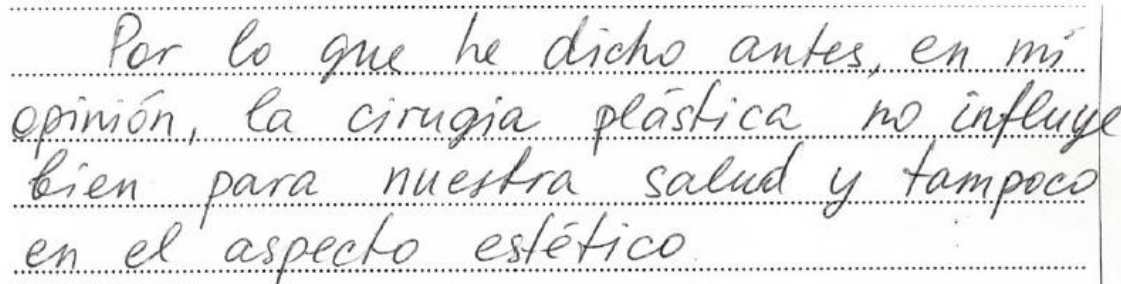 Por lo que he dicho antes, en mi
opinión, la cirugia plástica no influye
bien para nuestra salud y tampoco
en el aspecto estético.